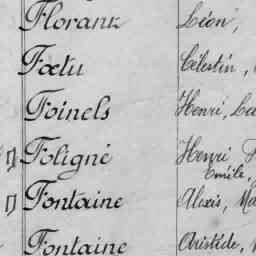 Florank Léon,
Fœtu Célestin,
Foinels Henri,
Foligné Henri
Emile,
Fontaine Alexis, Ma
Fontaine Aristide,